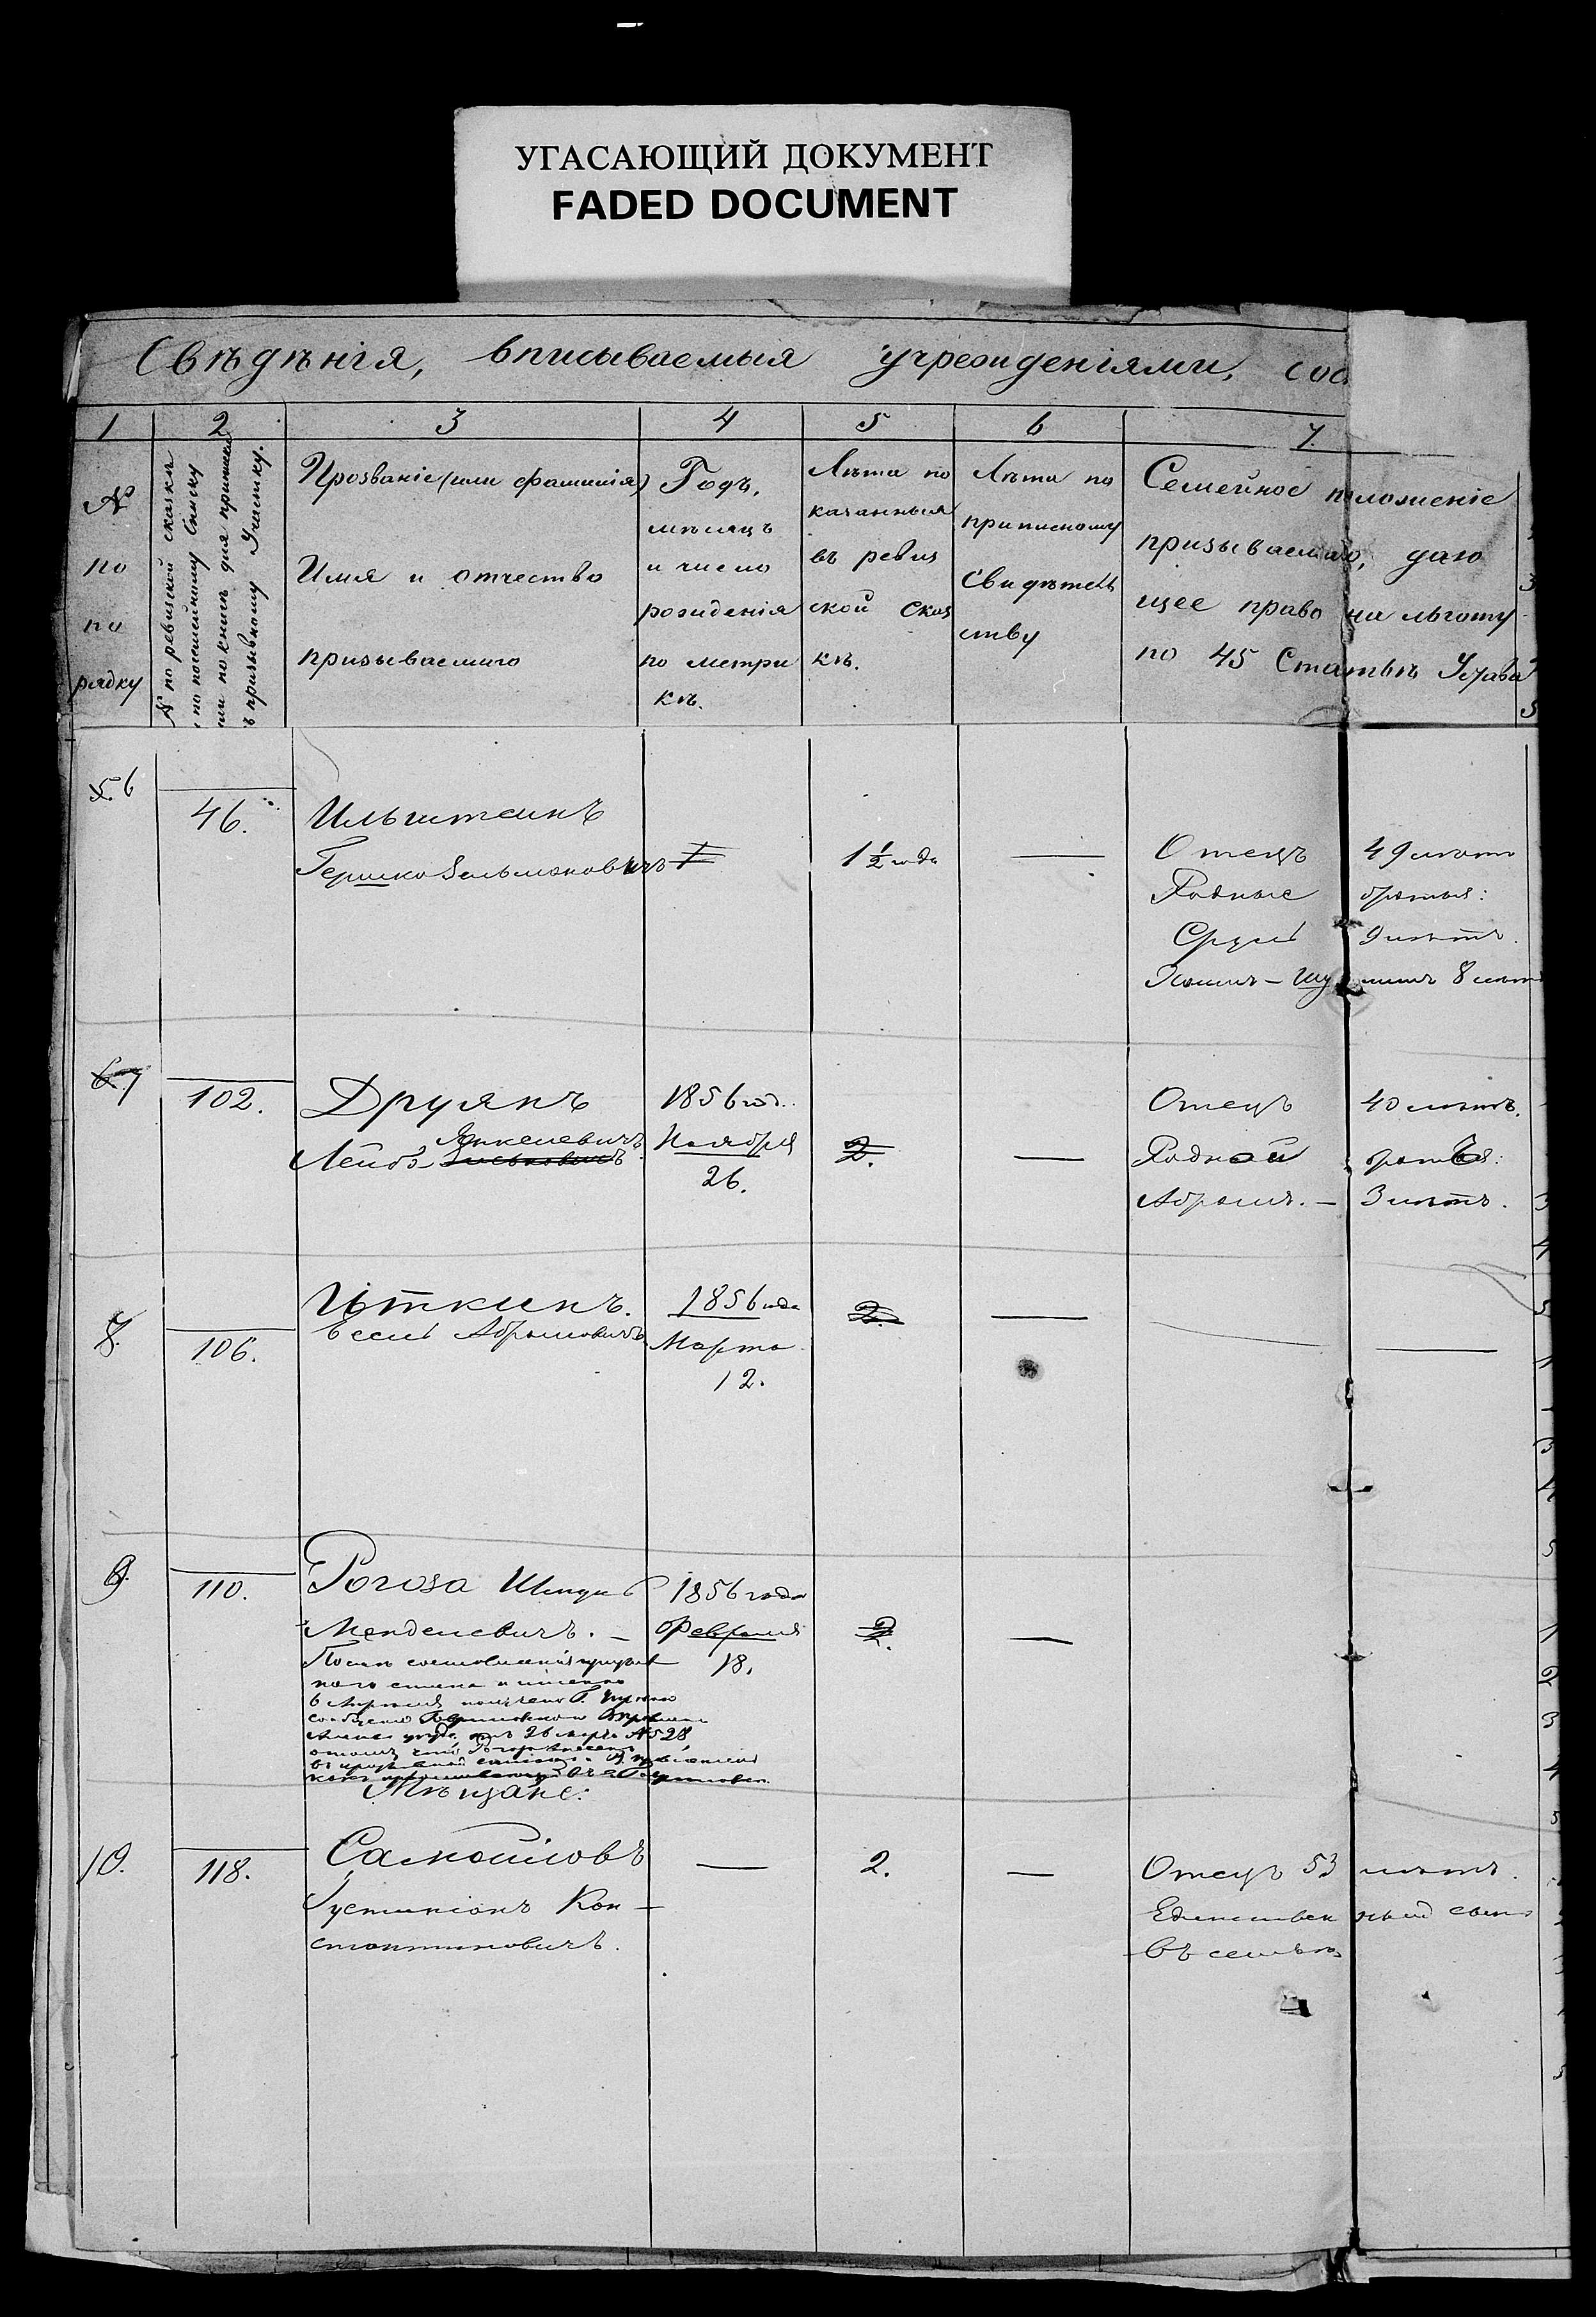 УГАСАЮЩИЙ ДОКУМЕНТ
FADED DOCUMENT
Свѣдѣнія, вписываемыя учрежденіями, сос
1 2 3 4 5 6 7.
№
по
по
рядку
№ по ревизской сказкѣ
по посемейному списку
или по книгѣ для приписки
къ призывному Участку.
Прозваніе (или фамилія)
Имя и отчество
призываемаго
Годъ,
мѣсяцъ
и число
рожденія
по метри
кѣ.
Лѣта по
казанныя
въ ревиз
ской сказ
кѣ.
Лѣта по
приписному
Свидѣтель
ству
Семейное положеніе
призываемаго, даю
щее право на льготу
по 45 Статьѣ Устава
5. 6
46.
Ильштеинъ
Гершко Зельмановичъ
1 1/2 года
Отецъ 49 лѣтъ
Родные братья:
Сруль 9 лѣтъ.
8 лѣтъ
6. 7
102.
Друянъ
Янкелевичъ
Лейба
1856 год.
Ноября
26.
2.
Отецъ 40 лѣтъ.
Родной братъ:
Абрамъ. — 3 лѣтъ.
8.
106.
Иткинъ.
Есель Абрамовичъ
1856 года
Марта
12.
2.
9.
110.
Рогоза
Менделевичъ. —
1856 года
Февраля
18.
2.
Послѣ составленія призыв
наго списка
26 марта № 528
Мѣщане:
10.
118.
Самойловъ
Іустиніанъ Кон—
стантиновичъ.
—
2.
—
Отецъ 53 лѣтъ.
Единствен ный сынъ
въ семьѣ